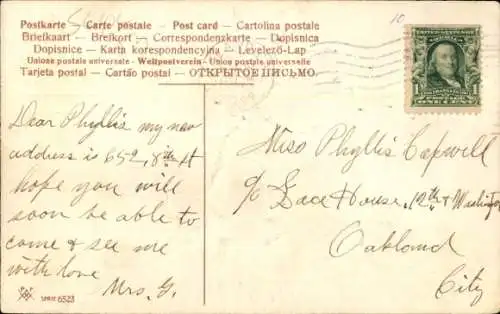 Postkarte - Carte postale - Post card - Cartolina postale
Briefkaart - Brefkort - Correspondenzkarte - Dopisnica
Dopisnice - Karta korespondencyjna - Levelező-Lap
Unione postale universale - Weltpostverein - Union postale universelle
Tarjeta postal - Cartão postal - ОТКРЫТОЕ ПИСЬМО.
10
UNITED STATES OF AMERICA
1 1
ONE CENT
Dear Phyllis my new
address is 652, 8th st
hope you will
soon be able to
come & see me
with love
Mrs. G.
Miss Phyllis Capwell
c/o Lace House, 12th & Washington
Oakland
City
SERIE 6523